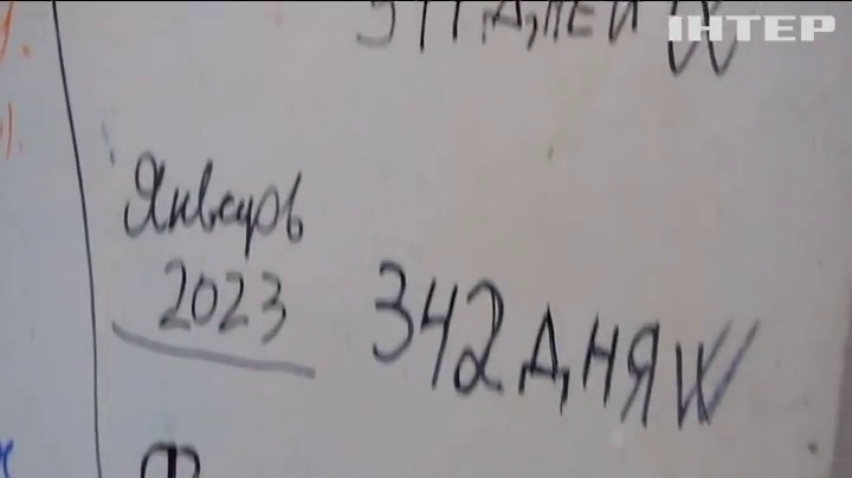 ІНТЕР
Январь
2023
342 ДНЯ W